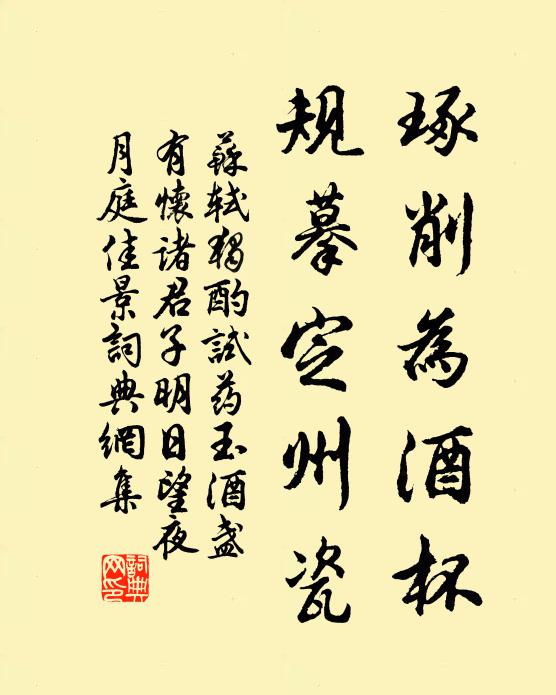 琢削為酒杯
規摹定州瓷
蘇軾獨酌試药玉酒盏
有懷諸君子明日望夜
月庭佳景詞典網集
詞典
网印